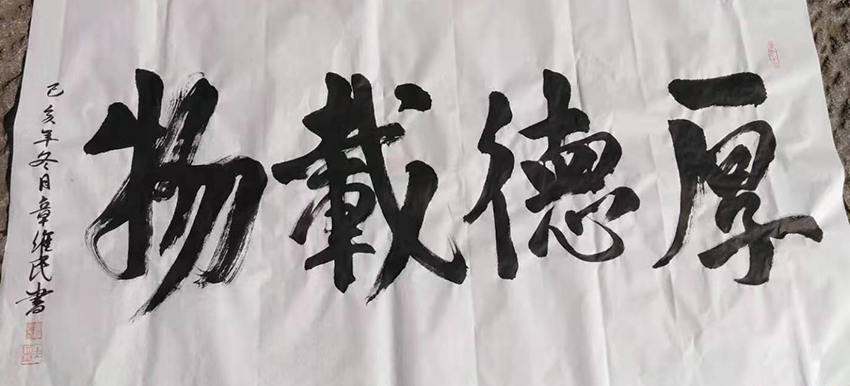 厚德載物
己亥年冬月章維民書